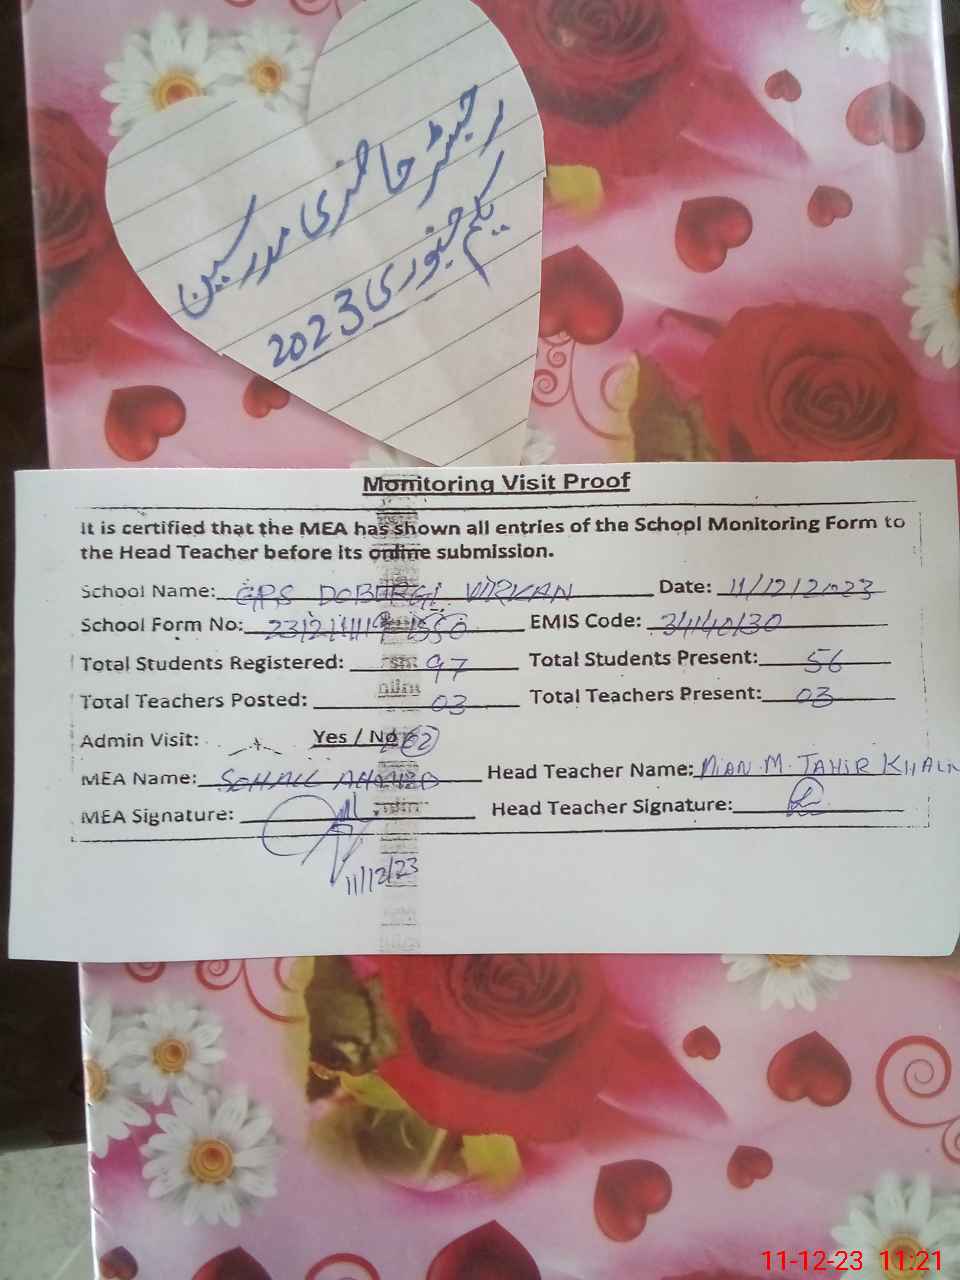 رجسٹر حاضری مدرسین
یکم جنوری 2023
Monitoring Visit Proof
It is certified that the MEA has shown all entries of the School Monitoring Form to
the Head Teacher before its online submission.
School Name: GPS DOBURGI VIRKAN Date: 11/12/2023
School Form No: EMIS Code: 34140130
Total Students Registered: 97 Total Students Present: 56
Total Teachers Posted: 03 Total Teachers Present: 03
Admin Visit: Yes / No 02
MEA Name: SOHAIL AHMED Head Teacher Name: MIAN M. TAHIR
MEA Signature: Head Teacher Signature:
11/12/23
11-12-23 11:21